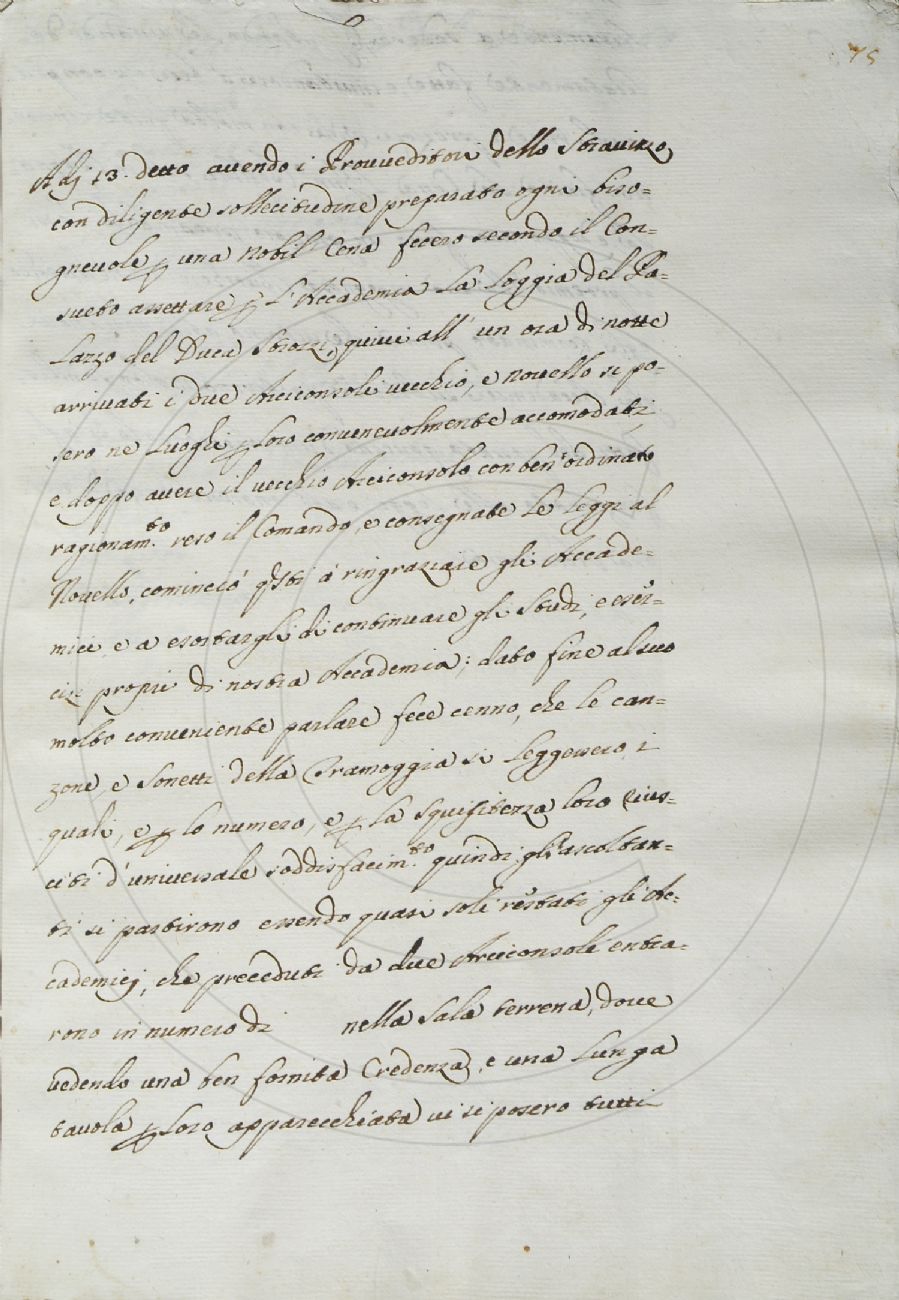 75
Adj 13. detto avendo i Provveditori dello Stravizzo,
con diligente sollecitudine preparato ogni biso=
gnevole ꝑ una nobil Cena fecero secondo il Con=
sueto assettare ꝑ l'Accademia la Loggia del Pa=
lazzo del Duca Strozzi, quivi all' un ora di notte
arrivati i due Arciconsoli vecchio, e novello si po=
sero ne luoghi ꝑ loro convenevolmente accomodati,
e doppo avere il vecchio Arciconsolo con ben'ordinato
ragionam.to reso il Comando, e consegnate le leggi al
Novello, cominciò questi à ringraziare gli Accade=
mici, e a esortargli di continuare gli studi, e eser=
ciz propri di nostra Accademia; dato fine al suo
molto conveniente parlare fece cenno, che le can=
zone, e sonetti della Tramoggia si leggessero, i
quali, e ꝑ lo numero, e ꝑ la squisitezza loro rius=
citi d'universale soddisfacim.to quindi gli ascoltan=
ti si partirono essendo quasi soli restati gli Ac=
cademicj, che preceduti da due Arciconsoli entra=
rono in numero di nella sala terrena, dove
vedendo una ben fornita Credenza, e una lunga
tavola ꝑ loro apparecchiata vi si posero tutti